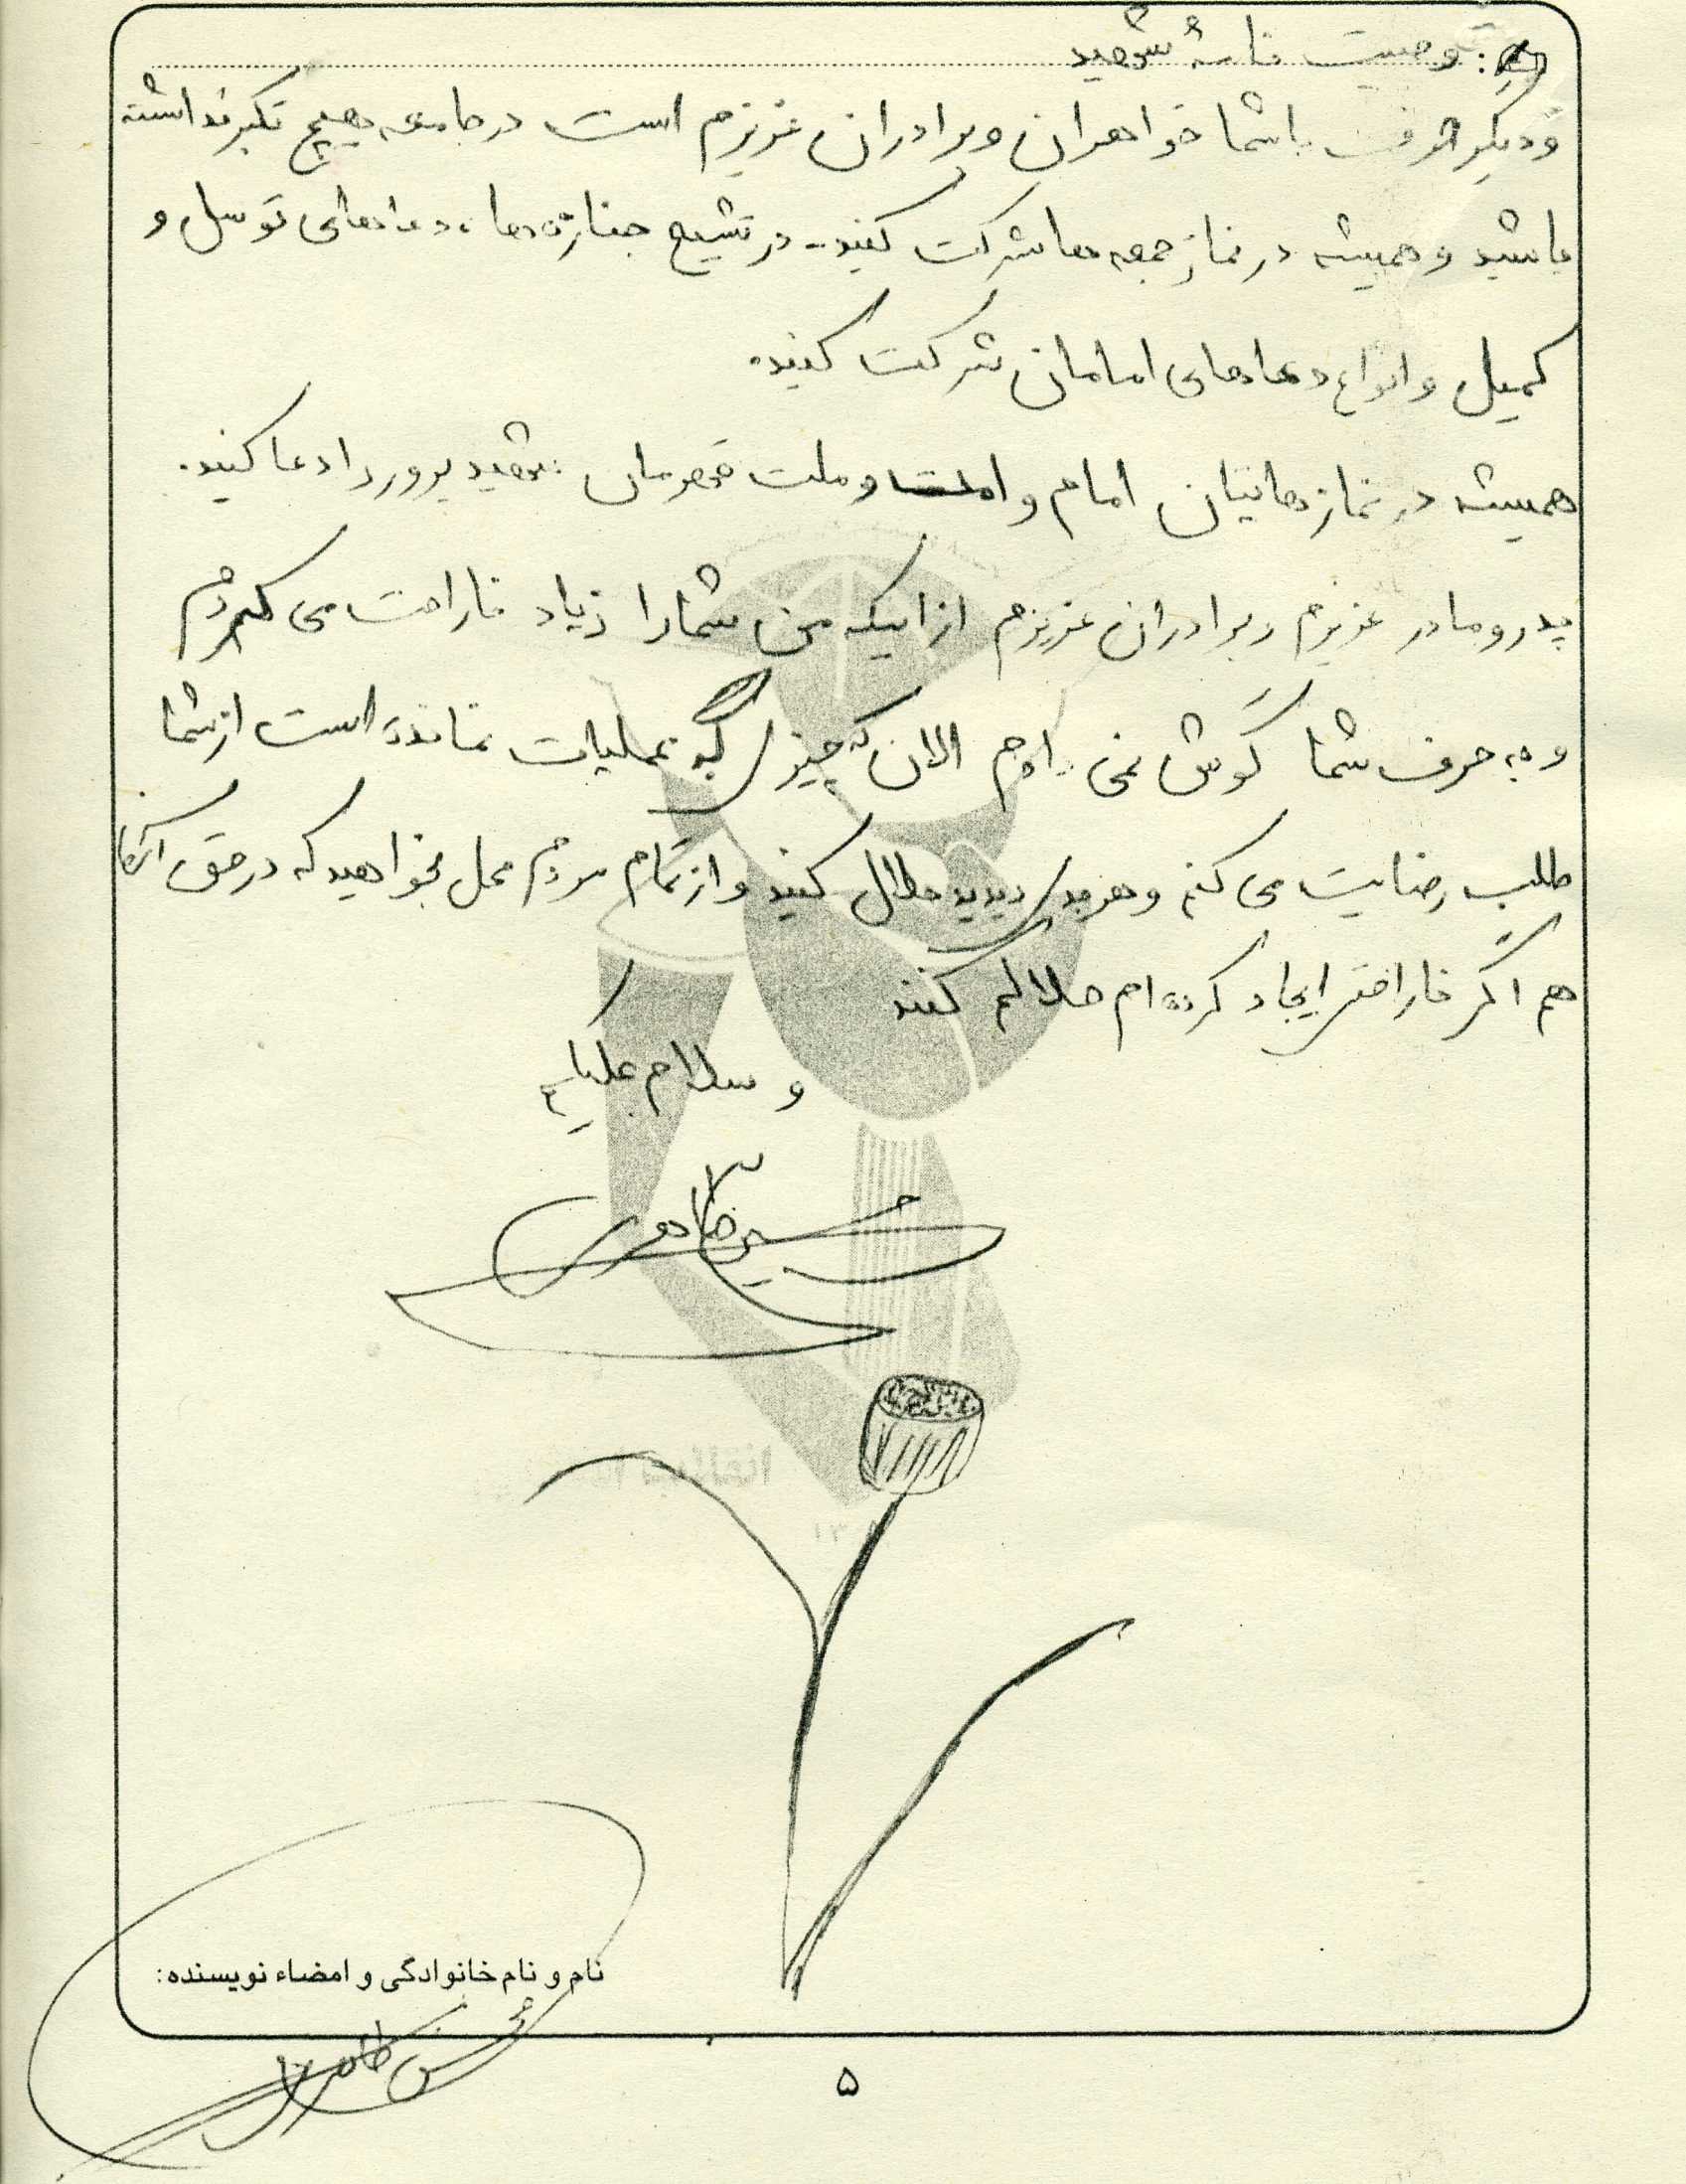 بقیه: وصیت نامهٔ شهید
و دیگر حرف باشما خواهران و برادران عزیزم است در جامعه هیچ تکبر نداشته
باشید و همیشه در نماز جمعه ها شرکت کنید- در تشییع جنازه ها، دعاهای توسل و
کمیل و انواع دعاهای امامان شرکت کنید.
همیشه در نمازهایتان امام و امت و ملت قهرمان شهید پرور را دعا کنید.
پدر و مادر عزیزم و برادران عزیزم از اینکه من شما را زیاد ناراحت می کردم
و به حرف شما گوش نمی دادم الان که چیزی به عملیات نمانده است از شما
طلب رضایت می کنم و هر بدی دیدید حلال کنید و از تمام مردم محل بخواهید که در حق آنها
هم اگر ناراحتی ایجاد کرده ام حلالم کنند
و سلام علیکم
حسین
نام و نام خانوادگی و امضاء نویسنده:
۵